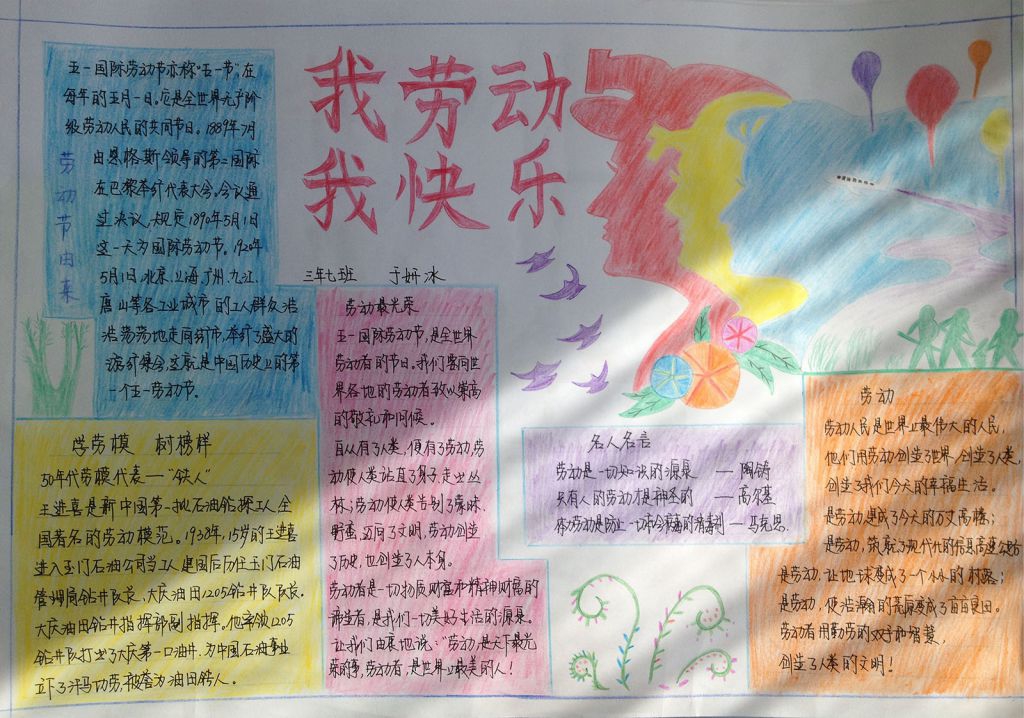 我劳动
我快乐
三年七班 于妍冰
劳动节由来
五一国际劳动节亦称“五一节”,在
每年的五月一日。它是全世界无产阶
级劳动人民的共同节日。1889年7月
由恩格斯领导的第二国际
在巴黎举行代表大会。会议通
过决议,规定1890年5月1日
这一天为国际劳动节。1920年
5月1日,北京、上海、广州、九江、
唐山等各工业城市的工人群众浩
浩荡荡地走向街市、举行了盛大的
游行集会,这就是中国历史上的第
一个五一劳动节。
学劳模 树榜样
50年代劳模代表——“铁人”
王进喜是新中国第一批石油钻探工人,全
国著名的劳动模范。1938年,15岁的王进喜
进入玉门石油公司当工人,建国后历任玉门石油
管理局钻井队长、大庆油田1205钻井队队长、
大庆油田钻井指挥部副指挥。他率领1205
钻井队打出了大庆第一口油井,为中国石油事业
立下了汗马功劳,被誉为油田铁人。
劳动最光荣
五一国际劳动节,是全世界
劳动者的节日。我们要向世
界各地的劳动者致以崇高
的敬礼和问候。
自从有了人类,便有了劳动,劳
动使人类站直了身子,走出丛
林;劳动使人类告别了蒙昧、
野蛮,迈向了文明,劳动创造
了历史,也创造了人本身。
劳动者是一切物质财富和精神财富的
缔造者,是我们一切美好生活的源泉。
让我们由衷地说:“劳动,是天下最光
荣的事,劳动者,是世界上最美的人!
名人名言
劳动是一切知识的源泉 ——陶铸
只有人的劳动才是神圣的 ——高尔基
体力劳动是防止一切社会病毒的消毒剂——马克思
劳动
劳动人民是世界上最伟大的人民,
他们用劳动创造了世界,创造了人类,
创造了我们今天的幸福生活。
是劳动,建成了今天的万丈高楼;
是劳动,筑就了现代化的信息高速公路
是劳动,让地球变成了一个小小的村落;
是劳动,使浩瀚的荒原变成了亩亩良田。
劳动者用勤劳的双手和智慧,
创造了人类的文明!